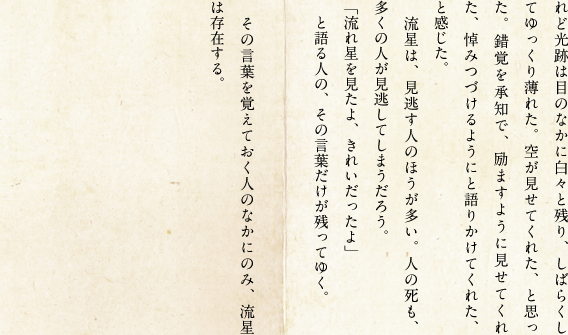 れど光跡は目のなかに白々と残り、しばらくし
てゆっくり薄れた。空が見せてくれた、と思っ
た。錯覚を承知で、励ますように見せてくれ
た、悼みつづけるようにと語りかけてくれた、
と感じた。
流星は、見逃す人のほうが多い。人の死も、
多くの人が見逃してしまうだろう。
「流れ星を見たよ、きれいだったよ」
と語る人の、その言葉だけが残ってゆく。
その言葉を覚えておく人のなかにのみ、流星
は存在する。